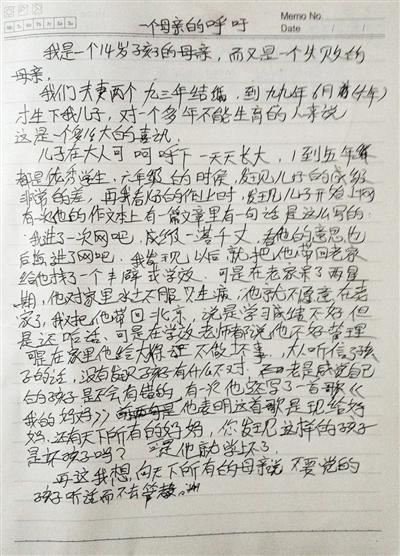 Memo No.
Date / /
一个母亲的呼吁
我是一个14岁孩子的母亲,而又是一个失败的
母亲,
我们夫妻两个九三年结婚,到九九年6月
才生下我儿子,对一个多年不能生育的人来说
这是一个多么大的喜讯,
儿子在大人呵呵呼下一天天长大,1到五年级
都是优秀学生,六年级的时候,发现儿子的成绩
非常的差,再我看他的作业时,发现儿子开始上网
有次他的作文本上有一篇文章里有一句话是这么写的:
我进了一次网吧,成绩一落千丈,看他的意思也
后悔进了网吧,我发现以后就把他带回老家
给他找了一个学校,可是在老家呆了两星
期,他对家里水土不服,只生病,他就不愿意在老
家了,我又把他带回北京,说是学习成绩不好但
是还可是在学校老师都说他不好管理
可是在家里他给大人保证不做坏事,大人听信了孩
子的话,没有发现孩子有什么不对,老是感觉自己
的孩子是不会有错的,有次他还写了一首歌《
我的妈妈》他表明这首歌是献给妈
妈,还有天下所有的妈妈,你发现这样的孩子
是坏孩子吗?他就学坏了,
再这我想向天下所有的母亲说不要觉的
孩子听话而不去管教。